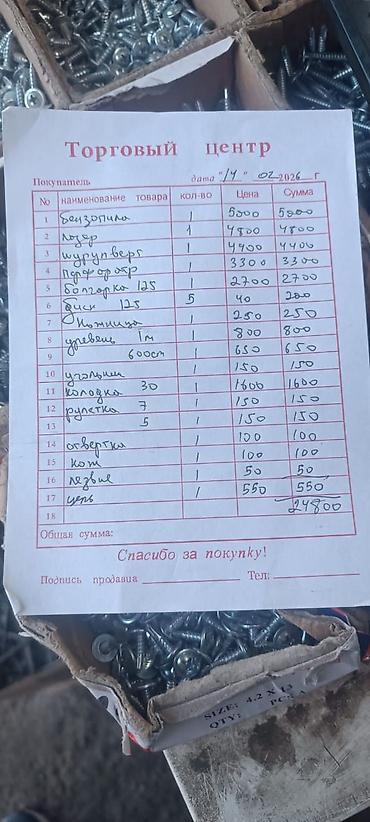 Торговый центр
Покупатель дата "14" 02 2026 г
No наименование товара кол-во Цена Сумма
1 бензопила 1 5000 5000
2 лазер 1 4800 4800
3 шурупверт 1 4400 4400
4 перфоратр 1 3300 3300
5 болгарка 125 1 2700 2700
6 диск 125 5 40 200
7 Ножница 1 250 250
8 уревень 1м 1 800 800
9 600см 1 650 650
10 угольник 1 150 150
11 колодка 30 1 1600 1600
12 рулетка 7 1 150 150
13 5 1 150 150
14 отвертка 1 100 100
15 нож 1 100 100
16 лезвие 1 50 50
17 цепь 1 550 550
18 24800
Общая сумма:
Спасибо за покупку!
Подпись продавца Тел:
SIZE: 4.2 X 13
QTY: PCS